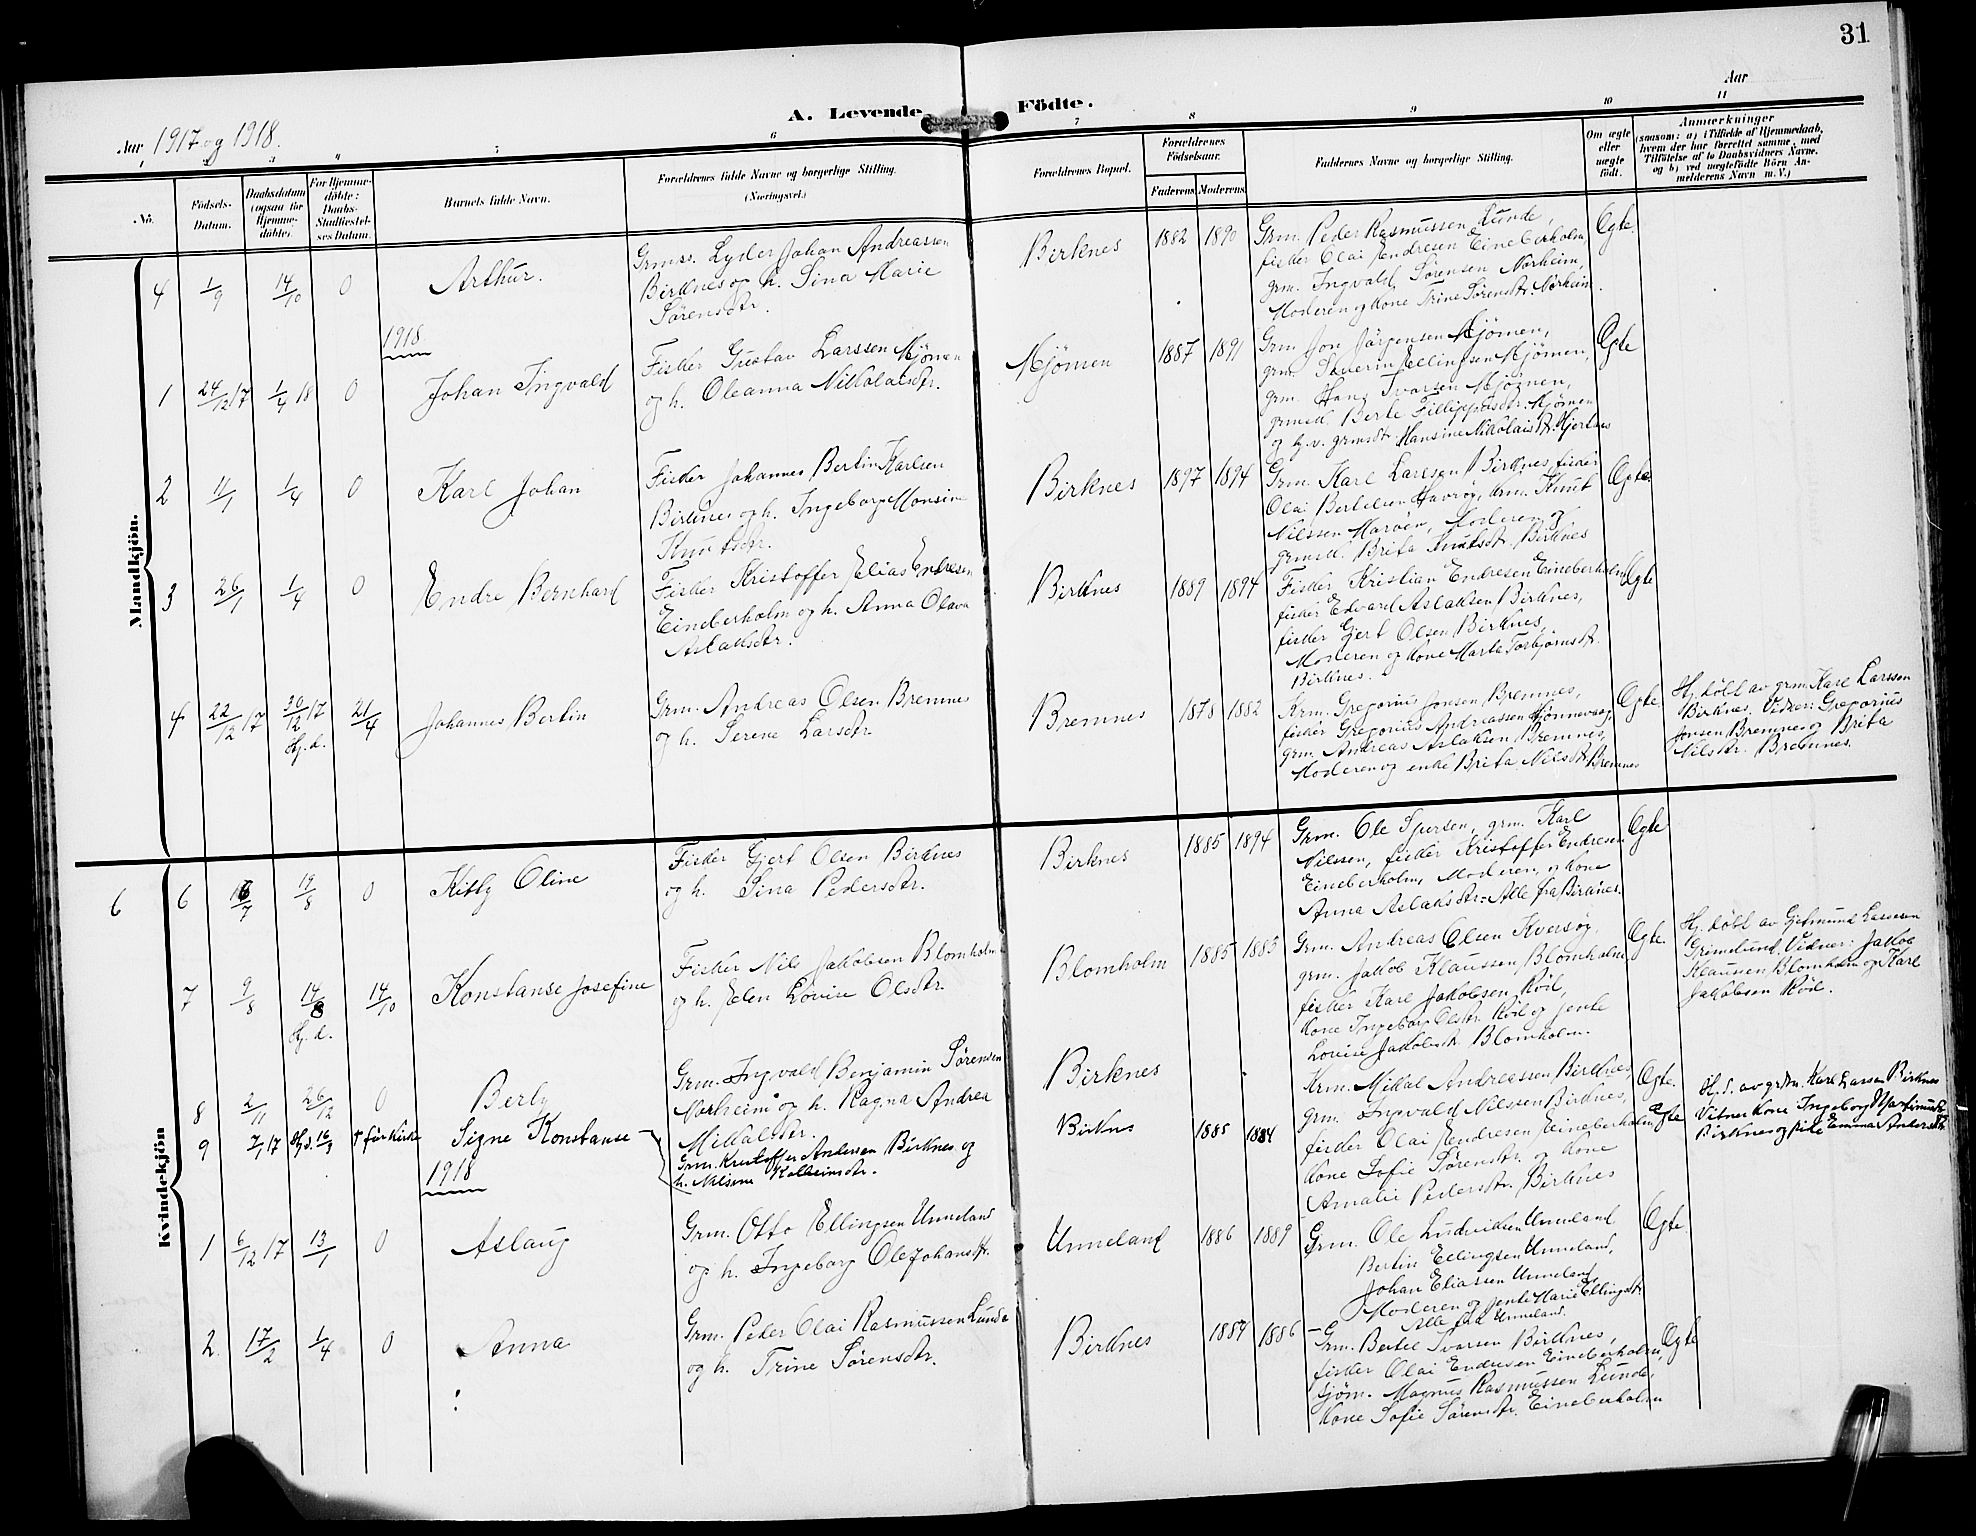 31
Aar 1917 og 1918.
A. Levende Födte.
Aar
6 7 8 9 10 11
No.
Födsels-Datum.
Daabsdatum (ogsaa for Hjemme-döbte).
For Hjemme-döbte: Daabs-Stadfæstel-ses Datum.
Barnets fulde Navn.
Forældrenes fulde Navne og borgerlige Stilling.
(Næringsvei.)
Forældrenes Bopæl.
Forældrenes Födselsaar.
Faderens. Moderens.
Faddernes Navne og borgerlige Stilling.
Om ægte eller uægte födt.
Anmærkninger
(saasom: a) i Tilfælde af Hjemmedaab, hvem der har forrettet samme, med Tilföielse af to Daabsvidners Navne, og b) ved uægtefödte Börn Anmelderens Navn m. V.)
Mandkjön.
4 1/9 14/10 0 Arthur.
Grmss. Lyder Johan Andreassen
Birknes og h. Sina Marie
Sørensdtr.
Birknes 1882 1890
Grm. Peder Rasmussen Lunde,
fisker Olai Endresen Eineberholm,
grm. Ingvald Sørensen Norheim,
Moderen og Kone Trine Sørensdtr. Norheim.
Ægte
1918
1 24/12 17 1/4 18 0 Johan Ingvald
Fisker Gustav Larssen Mjömen
og h. Oleanna Nikolaisdtr.
Mjömen 1887 1891
Grm Jon Jörgensen Mjömen,
grm. Severin Ellingsen Mjömen,
grm. Hans Ivarsen Mjömen,
grmed. Berte Fillippusdtr. Mjömen
og g.v. grmsdtr. Hansine Nikolaisdtr. Hjertnes
Ægte
2 11/1 1/4 0 Karl Johan
Fisker Johannes Bertin Karlsen
Birknes og h. Ingeborg Monsine
Knutsdtr.
Birknes 1897 1894
Grm. Karl Larssen Birknes, fisker
Olai Bertelsen Havröy, krm. Knut
Nilssen Maroen, Moderen og
grmed. Brita Knutsdtr. Birknes
Ægte
3 26/1 1/4 0 Endre Bernhard
Fisker Kristoffer Elias Endresen
Eineberholm og h. Anna Olava
Aslaksdtr.
Birknes 1889 1894
Fisker Kristian Endresen Eineberholm,
fisker Edvard Aslaksen Birknes,
fisker Gjert Olsen Birknes,
Moderen og Kone Marta Torbjørnsdtr.
Birknes.
Ægte
4 22/12 17 30/12 17 Hj.d. 21/4 Johannes Bertin
Grm. Andreas Olsen Bremnes
og h. Serene Larsdtr.
Bremnes 1878 1882
Krm. Gregorius Jonsen Bremnes,
fisker Gregorius Andreassen Hönnevaag,
grm. Andreas Aslaksen Bremnes,
Moderen og enke Brita Nilsdtr. Bremnes
Ægte
Hj. döbt av grm. Karl Larssen
Birknes. Vidner: Gregorius
Jonsen Bremnes og Brita
Nilsdtr. Bremnes.
Kvindekjön
6 6 16/7 19/8 0 Kitty Oline
Fisker Gjert Olsen Birknes
og h. Sina Pedersdtr.
Birknes 1885 1894
Grm. Ole Spersen, grm. Karl
Nilssen, fisker Kristoffer Endresen
Eineberholm, Moderen og kone
Anna Aslaksdtr. Alle fra Birknes.
Ægte
7 9/8 14/8 Hj.d. 14/10 Konstanse Josefine
Fisker Nils Jakobsen Blomholm
og h. Elen Lovise Olsdtr.
Blomholm 1885 1883
Grm. Andreas Olsen Kversøy,
grm. Jakob Klaussen Blomholm,
fisker Karl Jakobsen Röd,
Kone Ingeborg Olsdtr. Röd og jente
Lovise Jakobsdtr. Blomholm.
Ægte.
Hj. döbt av Gjermund Lassesen
Grimelund. Vidner: Jakob
Klaussen Blomholm og Karl
Jakobsen Röd.
8 2/11 26/12 0 Berly
Grm. Ingvald Benjamin Sørensen
Norheim og h. Ragna Andrea
Mikkalsdtr.
Birknes
Krm. Mikal Andreassen Birknes,
grm. Ingvald Nilssen Birknes,
fisker Olai Endresen Eineberholm,
Kone Sofie Sørensdtr. og Kone
Amalie Pedersdtr. Birknes
Ægte.
9 7/1 17 Hj.d. 16/3 † før Kirke Signe Konstanse
Grm. Kristoffer Andersen Birknes og
h. Nilsine Kolbeinsdtr.
Birknes 1885 1884 Ægte
Hj.d. av grdm. Karl Larsen Birknes
Vitner Kone Ingeborg
Birknes og pike Emma Andersdtr.
1918
1 6/12 17 13/1 0 Aslaug
Grm. Otto Ellingsen Unneland
og h. Ingeborg Ole Johansdtr.
Unneland 1886 1889
Grm. Ole Ludviksen Unneland
Bertin Ellingsen Unneland,
Johan Eliassen Unneland
Moderen og jente Marie Ellingsdtr.
Alle fra Unneland.
Ægte.
2 17/2 1/4 0 Anna
Grm. Peder Olai Rasmussen Lunde
og h. Trine Sørensdtr.
Birknes 1884 1886
Grm. Bertel Ivarsen Birknes,
fisker Olai Endresen Eineberholm,
sjöm. Magnus Rasmussen Lunde,
Kone Sofie Sørensdtr. Eineberholm
Ægte